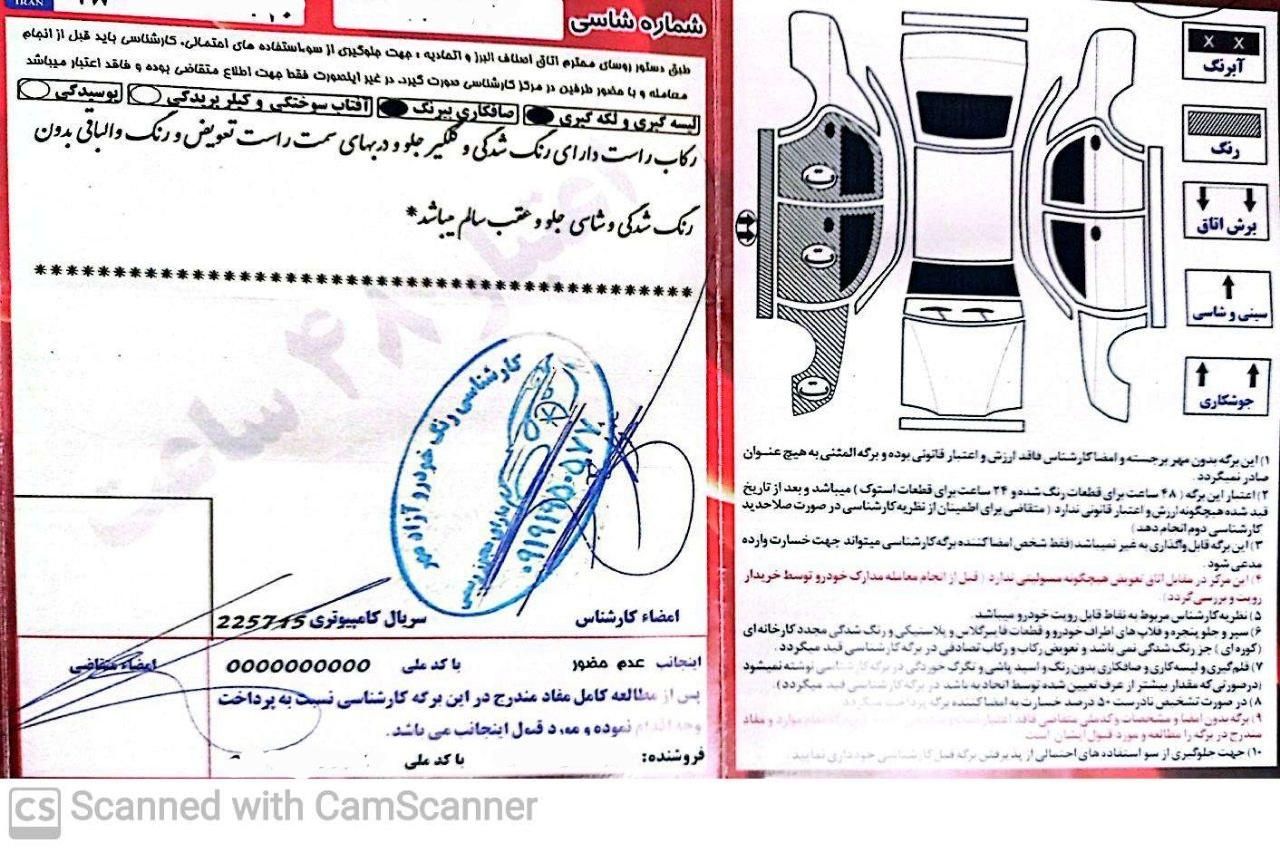 IRAN
شماره شاسی
طبق دستور روسای محترم اتاق اصناف البرز و اتحادیه ؛ جهت جلوگیری از سوءاستفاده های احتمالی، کارشناسی باید قبل از انجام
معامله و با حضور طرفین در مرکز کارشناسی صورت گیرد. در غیر اینصورت فقط جهت اطلاع متقاضی بوده و فاقد اعتبار میباشد
لیسه گیری و لکه گیری صافکاری بیرنگ آفتاب سوختگی و کیلر پریدگی پوسیدگی
رکاب راست دارای رنگ شدگی و گلگیر جلو و دربهای سمت راست تعویض و رنگ والباقی بدون
رنگ شدگی و شاسی جلو و عقب سالم میباشد*
**********************************************
اعتبار ۴۸ ساعت
کارشناسی رنگ خودرو آزاد مهر
۰۹۱۹۱۹۵۰۵۷۷
امضاء کارشناس
سریال کامپیوتری 225715
اینجانب عدم حضور با کد ملی 0000000000
امضاء متقاضی
پس از مطالعه کامل مفاد مندرج در این برگه کارشناسی نسبت به پرداخت
وجه اقدام نموده و مورد قبول اینجانب می باشد.
فروشنده: با کد ملی
X X
آبرنگ
رنگ
برش اتاق
سینی و شاسی
جوشکاری
۱) این برگه بدون مهر برجسته و امضا کارشناس فاقد ارزش و اعتبار قانونی بوده و برگه المثنی به هیچ عنوان
صادر نمیگردد.
۲) اعتبار این برگه ( ۴۸ ساعت برای قطعات رنگ شده و ۲۴ ساعت برای قطعات استوک ) میباشد و بعد از تاریخ
قید شده هیچگونه ارزش و اعتبار قانونی ندارد ( متقاضی برای اطمینان از نظریه کارشناسی در صورت صلاحدید
کارشناسی دوم انجام دهد)
۳) این برگه قابل واگذاری به غیر نمیباشد(فقط شخص امضا کننده برگه کارشناسی میتواند جهت خسارت وارده
مدعی شود.
۴) این مرکز در مقابل اتاق تعویض هیچگونه مسولیتی ندارد ( قبل از انجام معامله مدارک خودرو توسط خریدار
رویت و بررسی گردد).
۵) نظریه کارشناس مربوط به نقاط قابل رویت خودرو میباشد.
۶) سپر و جلو پنجره و فلاپ های اطراف خودرو و قطعات فایبرگلاس و پلاستیکی و رنگ شدگی مجدد کارخانه ای
(کوره ای ) جز رنگ شدگی نمی باشد و تعویض رکاب و رکاب تصادفی در برگه کارشناسی قید میگردد.
۷) قلم گیری و لیسه کاری و صافکاری بدون رنگ و اسید پاشی و تگرگ خوردگی در برگه کارشناسی نوشته نمیشود
(درصورتی که مقدار بیشتر از عرف تعیین شده توسط اتحادیه باشد در برگه کارشناسی قید میگردد).
۸) در صورت تشخیص نادرست ۵۰ درصد خسارت به امضا کننده برگه پرداخت میگردد
۹) برگه بدون امضا و مشخصات و کدملی متقاضی فاقد اعتبار تمام موارد و مفاد
مندرج در برگه را مطالعه و مورد قبول ایشان است
۱۰) جهت جلوگیری از سو استفاده های احتمالی از پذیرفتن برگه قبل کارشناسی خودداری نمایید.
CS Scanned with CamScanner